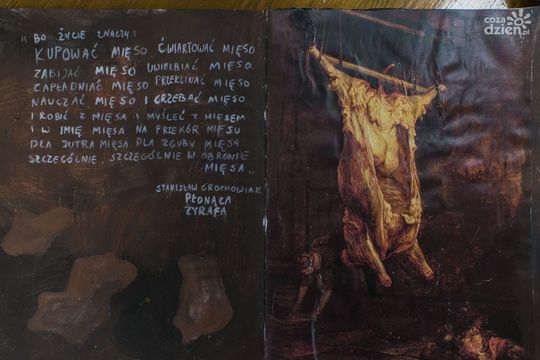 „BO ŻYCIE ZNACZY:
KUPOWAĆ MIĘSO ĆWIARTOWAĆ MIĘSO
ZABIJAĆ MIĘSO UWIELBIAĆ MIĘSO
ZAPŁADNIAĆ MIĘSO PRZEKLINAĆ MIĘSO
NAUCZAĆ MIĘSO I GRZEBAĆ MIĘSO
I ROBIĆ Z MIĘSA I MYŚLEĆ Z MIĘSEM
I W IMIĘ MIĘSA NA PRZEKÓR MIĘSU
DLA JUTRA MIĘSA DLA ZGUBY MIĘSA
SZCZEGÓLNIE, SZCZEGÓLNIE W OBRONIE
MIĘSA„
STANISŁAW GROCHOWIAK
PŁONĄCA
ŻYRAFA
coza
dzien.pl